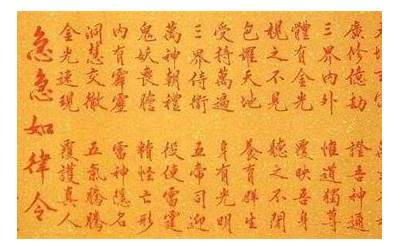 廣修億劫 證吾神通
三界內外 惟道獨尊
體有金光 覆映吾身
視之不見 聽之不聞
包羅天地 養育群生
受持萬遍 身有光明
三界侍衛 五帝司迎
萬神朝禮 役使雷霆
鬼妖喪膽 精怪亡形
內有霹靂 雷神隱名
洞慧交徹 五氣騰騰
金光速現 覆護真人
急急如律令